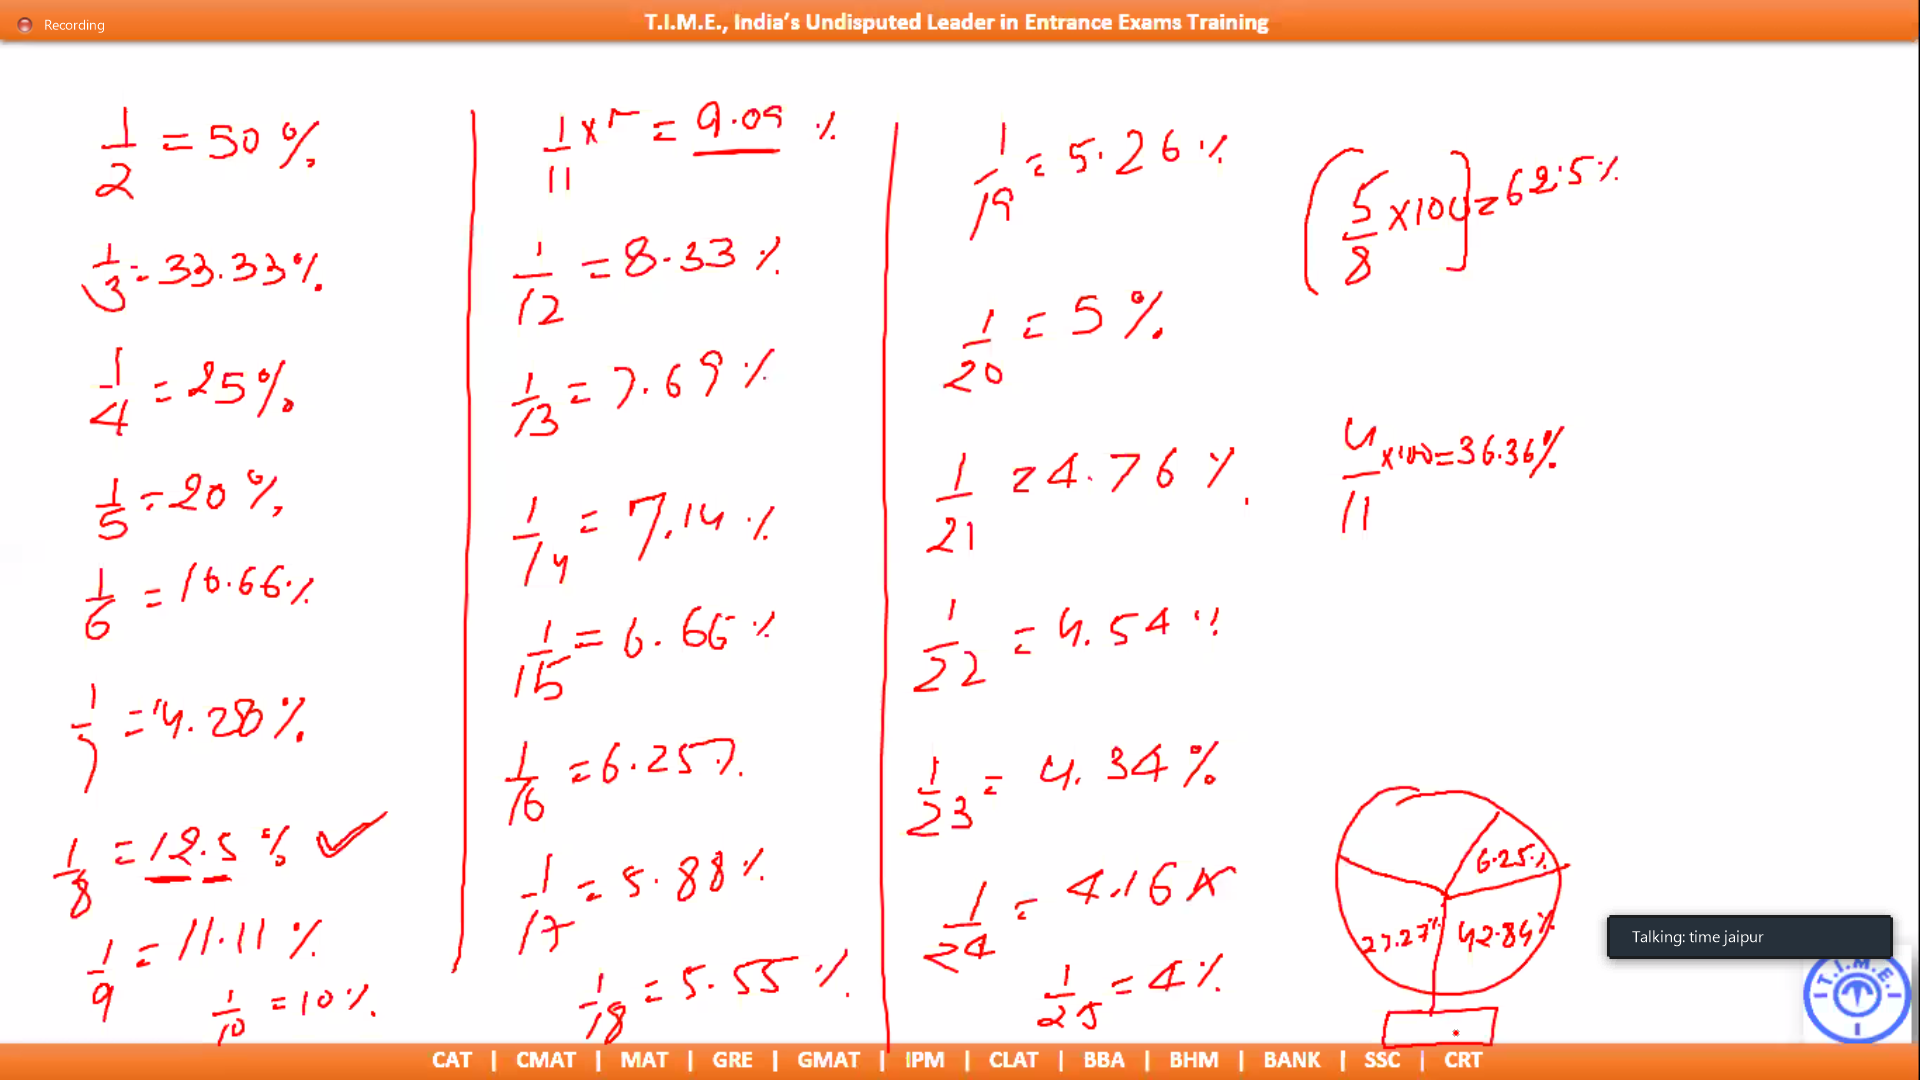 Recording
T.I.M.E., India's Undisputed Leader in Entrance Exams Training
1/2 = 50 %
1/3 = 33.33%
1/4 = 25%
1/5 = 20 %
1/6 = 16.66%
1/7 = 14.28%
1/8 = 12.5 % ✓
1/9 = 11.11 %
1/10 = 10%
1/11 × = 9.09 %
1/12 = 8.33 %
1/13 = 7.69 %
1/14 = 7.14 %
1/15 = 6.66 %
1/16 = 6.25%
1/17 = 5.88 %
1/18 = 5.55 %
1/19 = 5.26 %
1/20 = 5 %
1/21 = 4.76 %
1/22 = 4.54 %
1/23 = 4.34 %
1/24 = 4.16
1/25 = 4 %
(5/8 ×100] = 62.5%
4/11 ×100 = 36.36%
6.25%
27.27%
42.84%
Talking: time jaipur
T.I.M.E.
CAT | CMAT | MAT | GRE | GMAT | IPM | CLAT | BBA | BHM | BANK | SSC | CRT